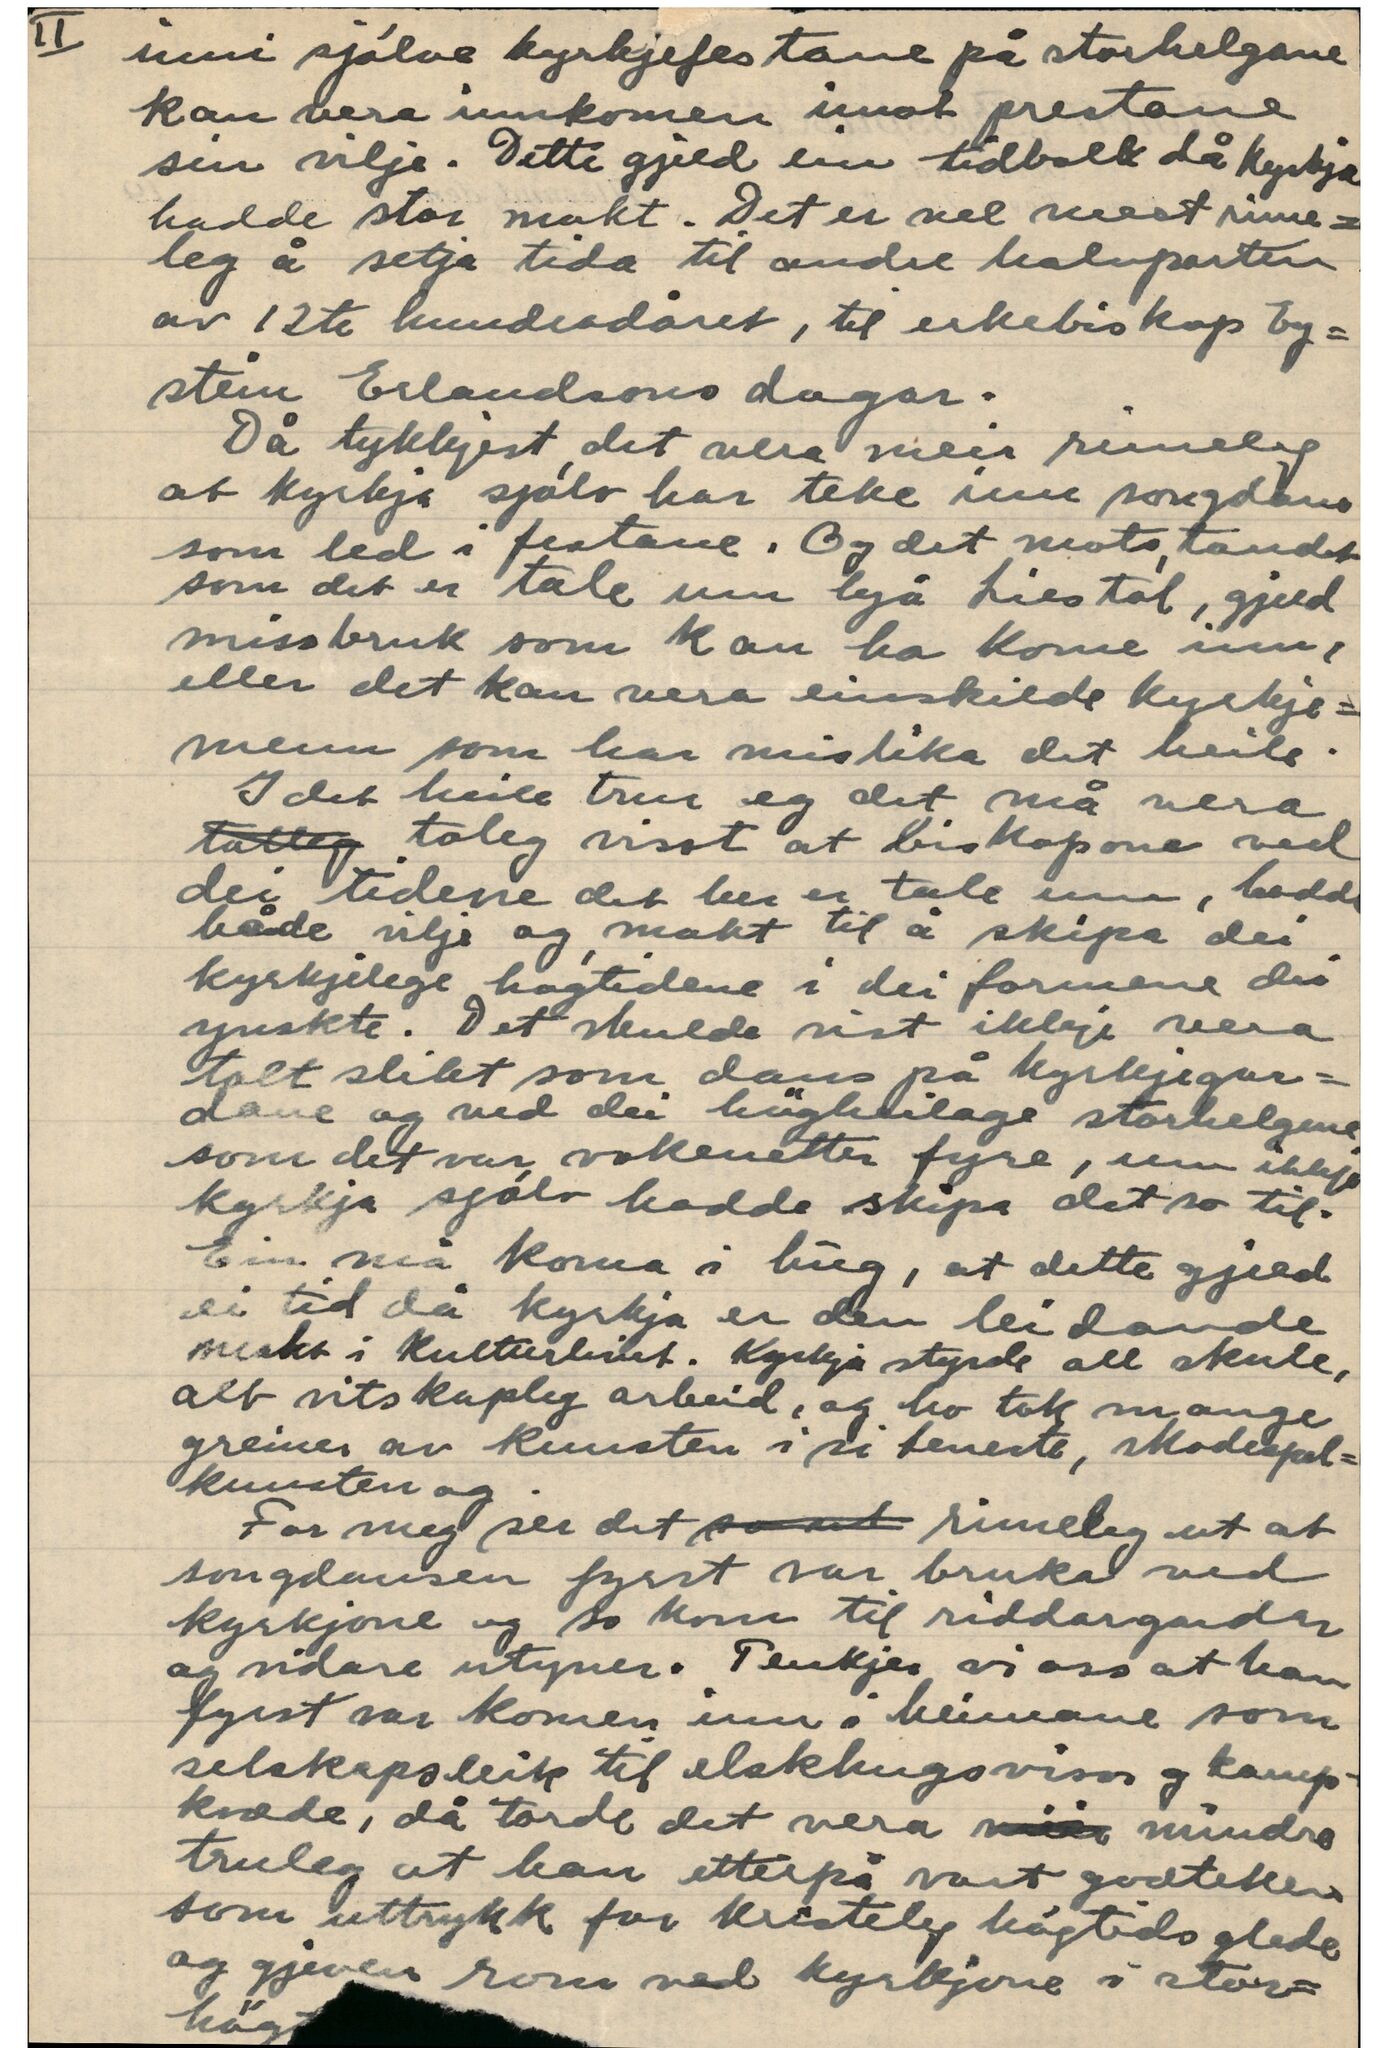 II
inni sjølve kyrkjefestane på storhelgane
kan vera innkomen imot prestane
sin vilje. Dette gjeld ein tidbolk då kyrkja
hadde stor makt. Det er vel mest rime=
leg å setja tida til andre halvparten
av 12te hundradåret, til erkebiskop Ey=
stein Erlandsons dagar.
Då tykkjest det vera meir rimeleg
at kyrkja sjølv har teke inn songdans
som led i festane. Og det motstandet
som det er tale um hjå Liestøl, gjeld
missbruk som kan ha kome inn,
eller det kan vera einskilde kyrkje=
menn som har mislika det heile.
I det heile trur eg det må vera
toleg visst at biskopane ved
dei tidene det her er tale um, hadde
både vilje og makt til å skipa dei
kyrkjelege høgtidene i dei formene dei
ynskte. Det skulde vist ikkje vera
tolt slikt som dans på kyrkjegar=
dane og ved dei högheilage storhelgene
som det var vokenetter fyre, um ikkje
kyrkja sjølv hadde skipa det so til.
Ein må koma i hug, at dette gjeld
ei tid då kyrkja er den leidande
makt i kulturlivet. Kyrkja styrde all skule,
alt vitskapleg arbeid, og ho tok mange
greiner av kunsten i si teneste, skodespel=
kunsten og.
For meg ser det so ut rimeleg ut at
songdansen fyrst var bruka ved
kyrkjone og so kom til riddargardar
og vidare utyver. Tenkjer vi oss at han
fyrst var komen inn i heimane som
selskapsleik til elskhugsvisor og kamp-
kvæde, då torde det vera mindre
truleg at han etterpå vart godteken
som uttrykk for kristeleg högtidsglede
og gjeven rom ved kyrkjone i stor=
högt